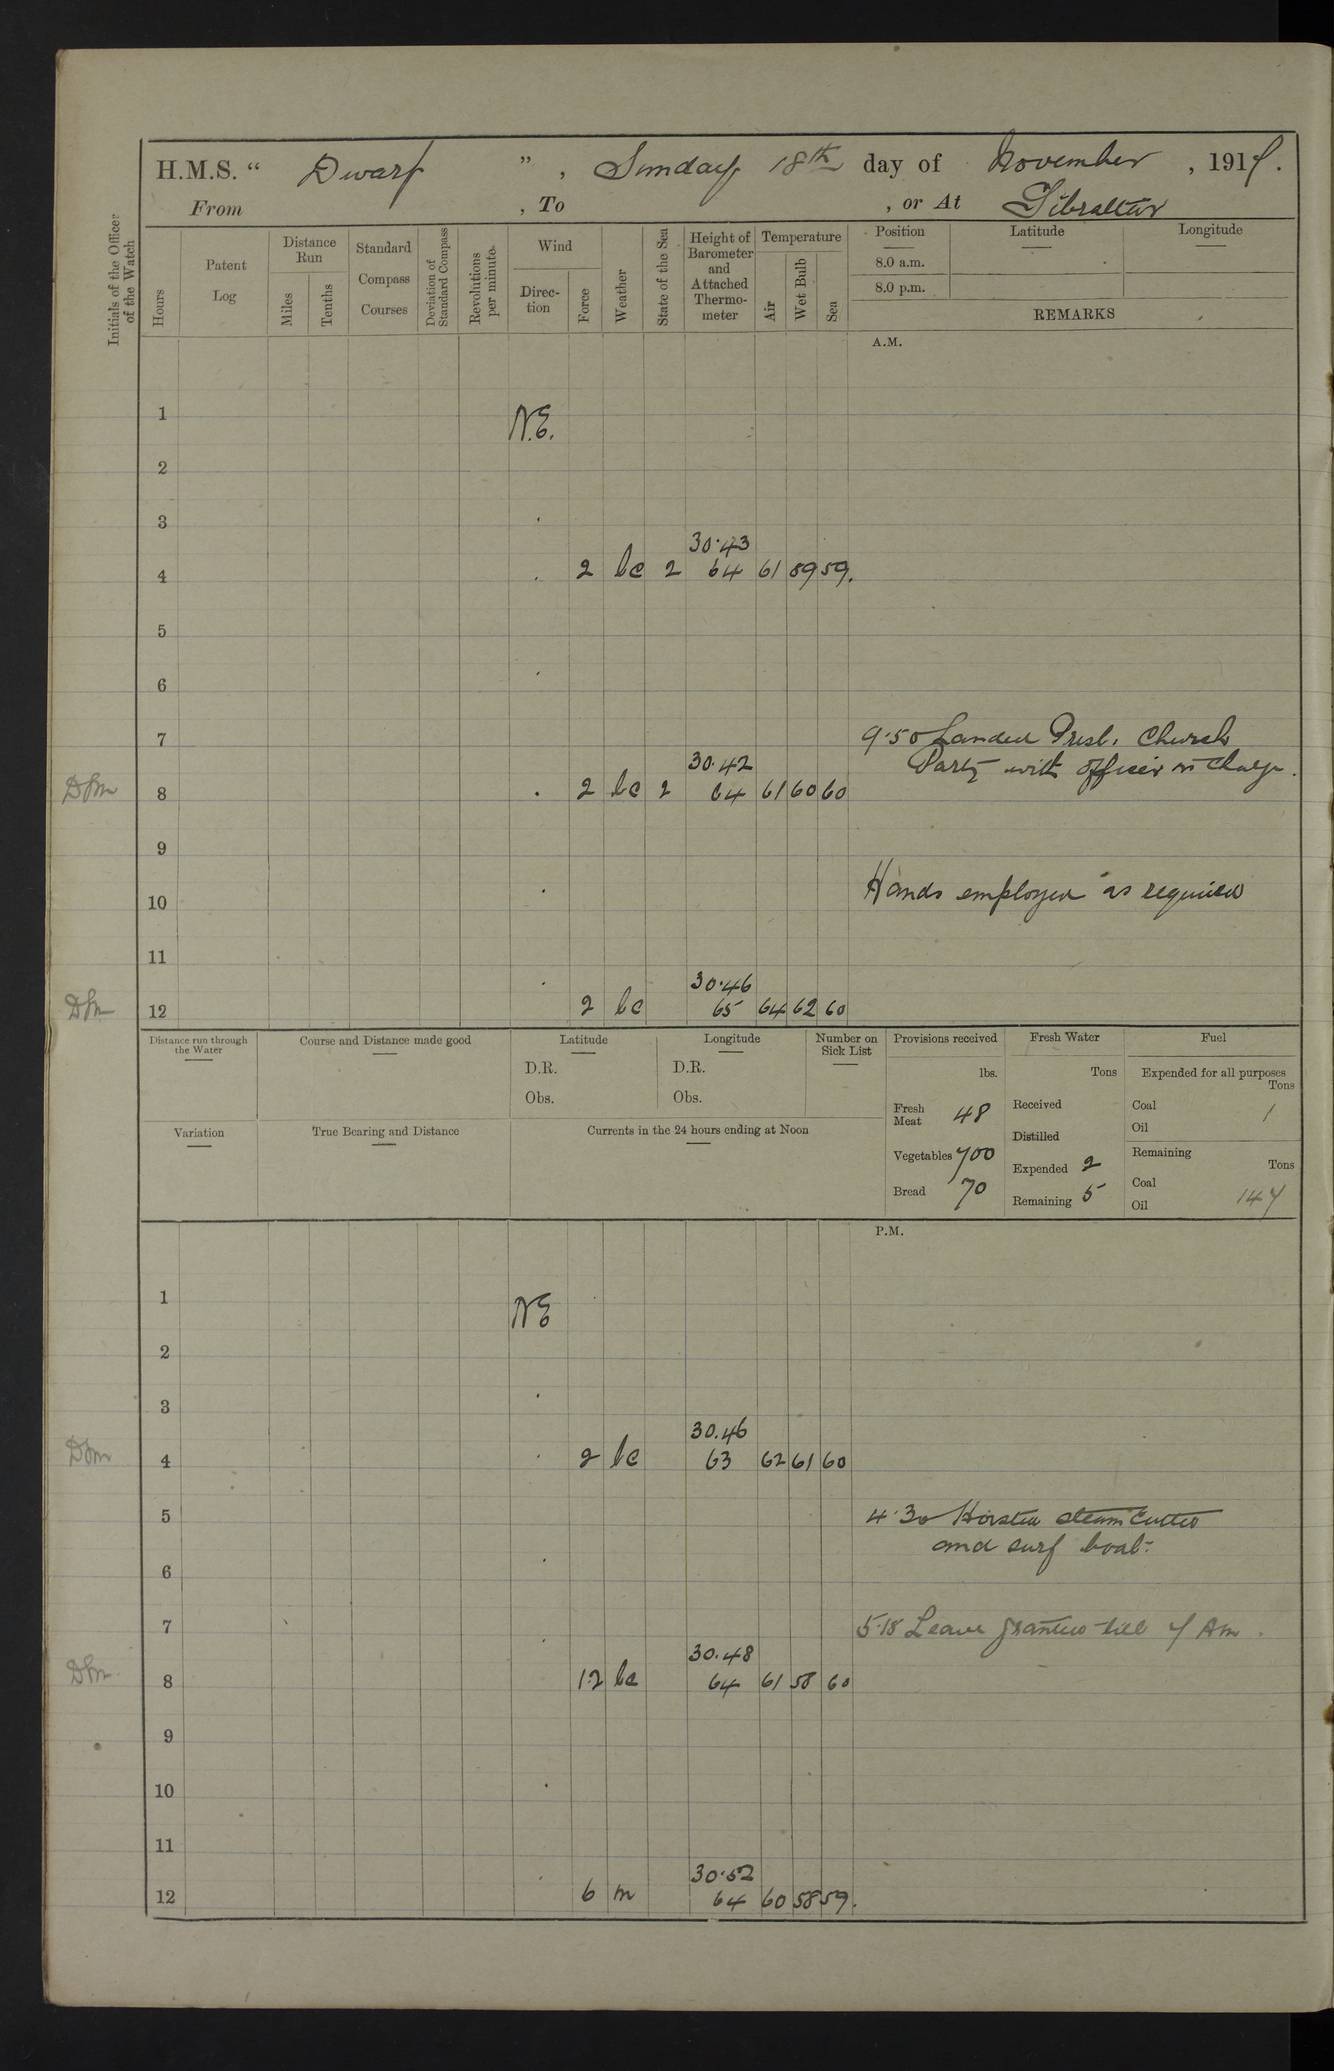 H.M.S. “ Dwarf ”, Sunday 18th day of November, 1917.
From , To , or At Gibraltar
Initials of the Officer of the Watch
Hours
Patent Log
Distance Run
Miles
Tenths
Standard Compass Courses
Deviation of Standard Compass
Revolutions per minute.
Wind
Direction
Force
Weather
State of the Sea
Height of Barometer and Attached Thermometer
Temperature
Air
Wet Bulb
Sea
Position
Latitude
Longitude
8.0 a.m.
8.0 p.m.
REMARKS
A.M.
1 N.E.
2
3
30.43
4 2 bc 2 64 61 59 59.
5
6
7 9.50 Landed Presb. Church
30.42 Party with officer in charge.
D M 8 2 bc 2 64 61 60 60
9
10 Hands employed as required
11
30.46
12 2 bc 65 64 62 60
Distance run through the Water
Course and Distance made good
Latitude
D.R.
Obs.
Longitude
D.R.
Obs.
Number on Sick List
Provisions received
lbs.
Fresh Meat 48
Vegetables 700
Bread 70
Fresh Water
Tons
Received
Distilled
Expended 2
Remaining 5
Fuel
Expended for all purposes
Tons
Coal 1
Oil
Remaining
Tons
Coal
Oil 147
Variation
True Bearing and Distance
Currents in the 24 hours ending at Noon
P.M.
1 NE
2
3
30.46
4 2 bc 63 62 61 60
5 4.30 Hoisted steam cutter
and surf boat.
6
7 5.15 Leave granted till 7 Am.
30.48
8 1.2 bc 64 61 58 60
9
10
11
30.52
12 6 m 64 60 58 59.